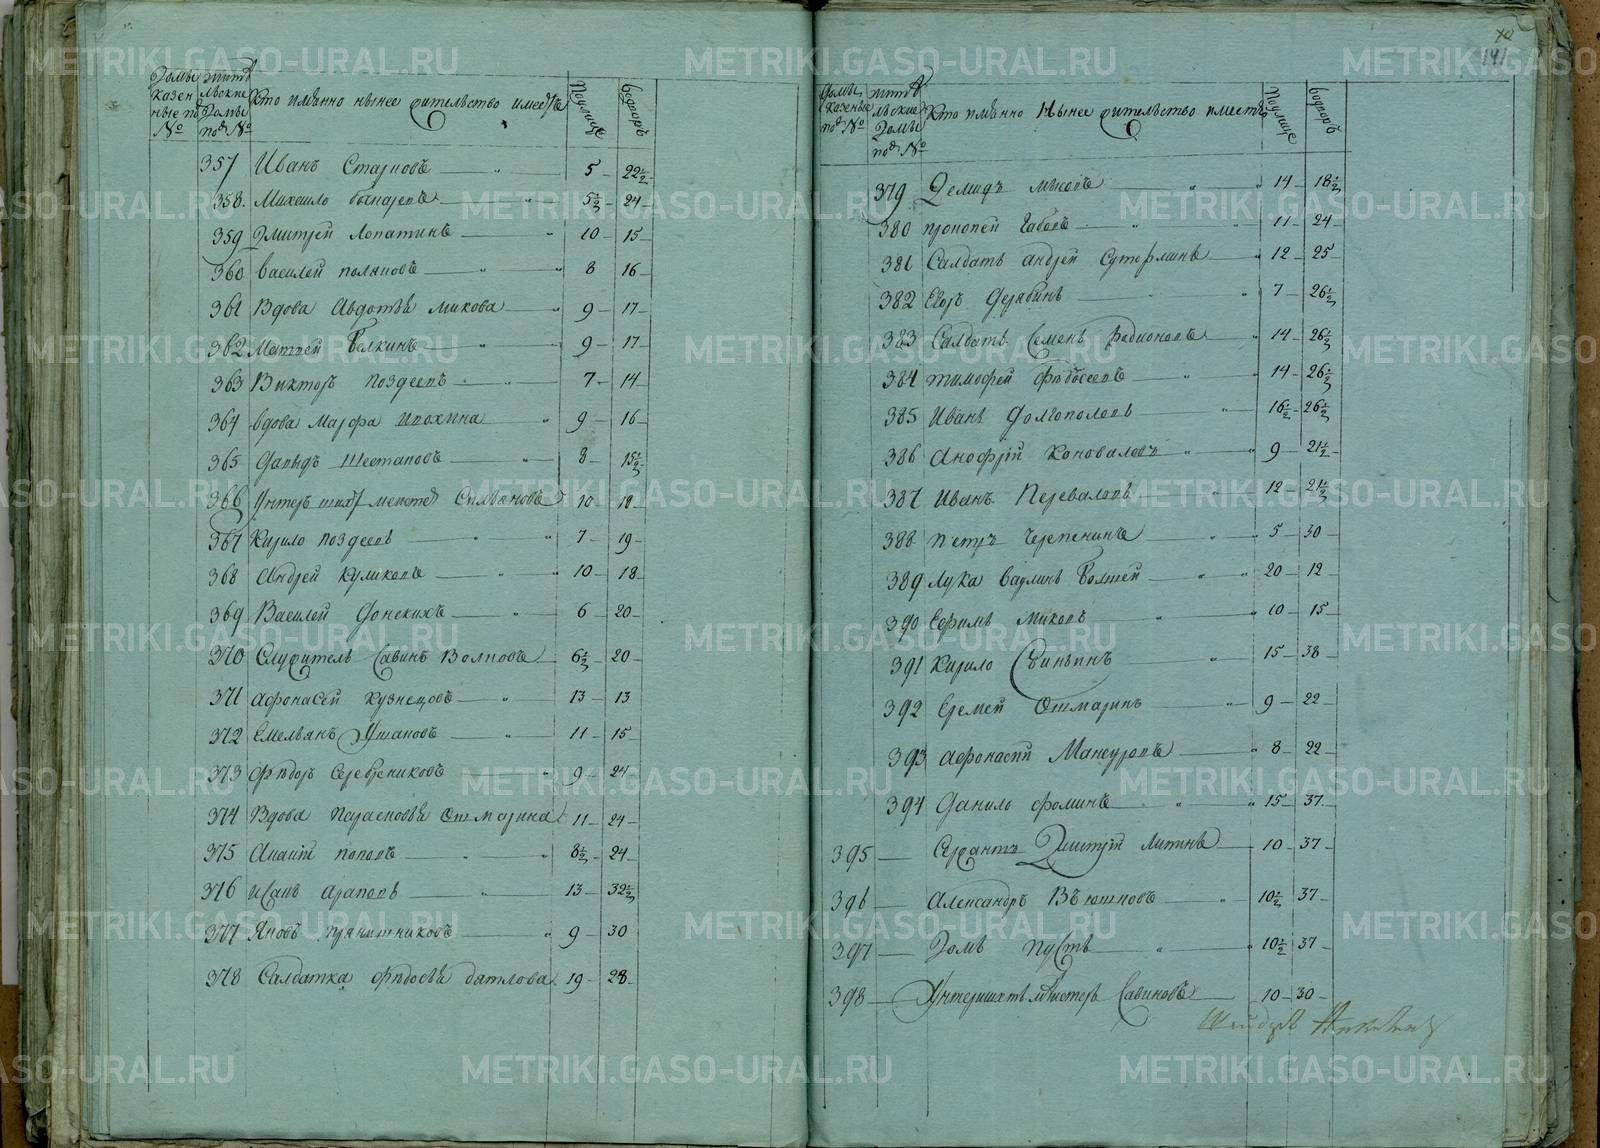 Домы казен ные под №
жите льские Домы под №
Кто имянно ныне жительство имеетъ
Поулице
водворъ
357 Иванъ Старковъ 5 22½
358. Михаило 5½ 24
359 Дмитрей Лопатинъ 10 15
360 Василей Поляковъ 8 16
361 Вдова Авдотья Микова 9 17
362 Матвей Белкинъ 9 17
363 Викторъ Поздеевъ 7 14
364 вдова Марфа Ипохина 9 16
365 Давыдъ Шестаковъ 8 15½
366 Унтеръ шихтмейстеръ 10 18
367 Кирило Поздеевъ 7 19
368 Андрей Куликовъ 10 18
369 Василей Донскихъ 6 20
370 Служитель Савинъ Волковъ 6½ 20
371 Афонасей Кузнецовъ 13 13
372 Емельянъ Ушаковъ 11 15
373 Фёдоръ Серебрениковъ 9 24
374 Вдова Парасковья Ошмарина 11 24
375 Попов 8½ 24
376 Иванъ Араповъ 13 32½
377 Яковъ Прянишниковъ 9 30
378 Салдатка Федосья Дятлова 19 28
141
Домы казеные под №
жите льские Домы под №
Кто имянно Ныне жительство имеетъ
Поулице
водворъ
379 Демидъ Мыковъ 14 18½
380 Прокопей Бабовъ 11 24
381 Салдатъ Андрей Сутормин 12 25
382 Егоръ Дерябинъ 7 26½
383 Салдатъ Семенъ Родионовъ 14 26½
384 Тимофей Федосеевъ 14 26½
385 Иванъ Долгополовъ 16½ 26½
386 Анофрей Коноваловъ 9 21½
387 Иванъ Переваловъ 12 21½
388 Петръ Черепенинъ 5 30
389 Лука Ваулинъ Болшей 20 12
390 Ефимъ Миковъ 10 15
391 Кирило Свиньинъ 15 38
392 Еремей Ошмаринъ 9 22
393 Афонасей Мансуровъ 8 22
394 Данило Фоминъ 15 37
395 Сержантъ Дмитрей Липинъ 10 37
396 Александръ Вьюшковъ 10½ 37
397 Домъ Пустъ 10½ 37
398 Унтершихтмейстеръ Савиновъ 10 30
METRIKI.GASO-URAL.RU